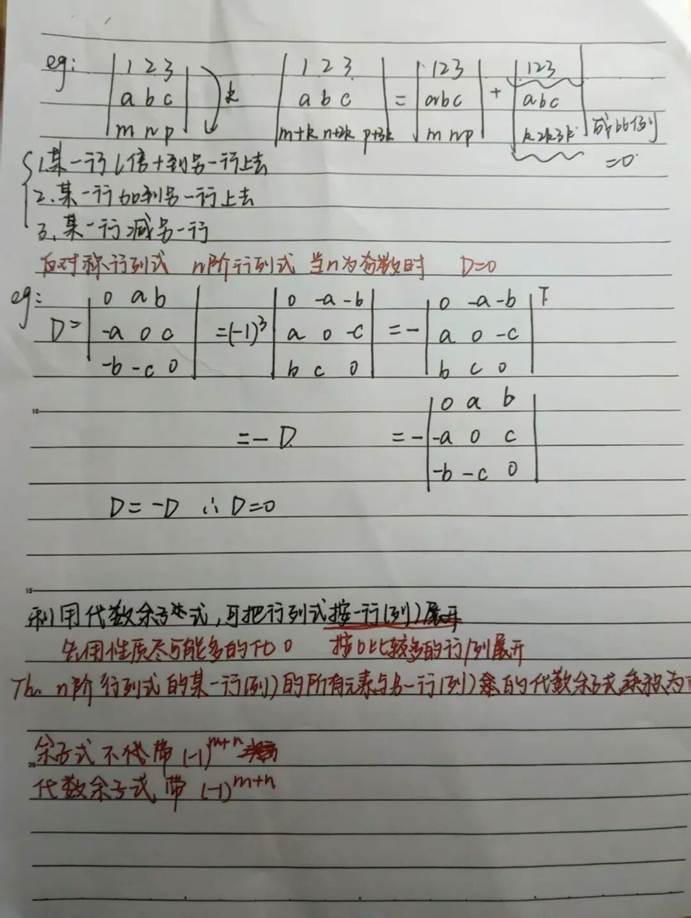 eg: | 1 2 3 / a b c / m n p | k | 1 2 3 / a b c / m+k n+2k p+3k | = | 1 2 3 / a b c / m n p | + | 1 2 3 / a b c / k 2k 3k | 成比例 =0
1.某一行k倍+到另一行上去
2.某一行加到另一行上去
3.某一行减另一行
反对称行列式 n阶行列式 当n为奇数时 D=0
eg: D= | 0 a b / -a 0 c / -b -c 0 | =(-1)³ | 0 -a -b / a 0 -c / b c 0 | =- | 0 -a -b / a 0 -c / b c 0 |ᵀ
=-D =- | 0 a b / -a 0 c / -b -c 0 |
D=-D ∴D=0
利用代数余子式,可把行列式按一行(列)展开
先用性质尽可能多的化0 按0比较多的行/列展开
Th. n阶行列式的某一行(列)的所有元素与另一行(列)的代数余子式乘积为
余子式不带(-1)^{m+n}
代数余子式,带(-1)^{m+n}